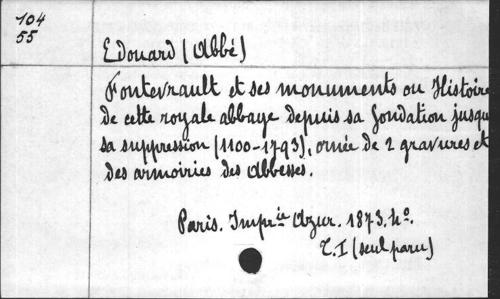 104
55
Edouard (Abbé)
Fontevrault et ses monuments ou Histoire
de cette royale abbaye depuis sa fondation jusqu
sa suppression (1100-1793), ornée de 2 gravures et
des armoiries des Abbesses.
Paris. Impr.ie Azur. 1873. 4º.
T. I (seul paru)